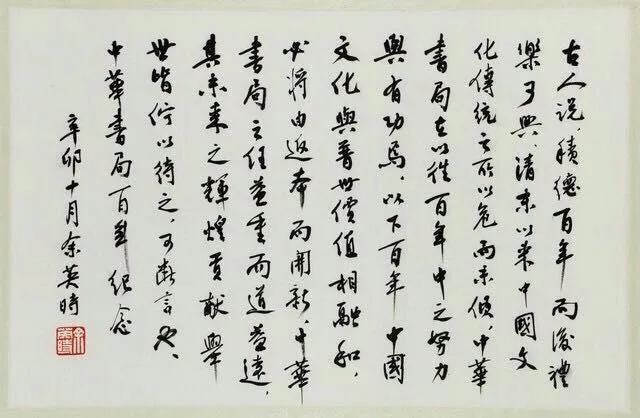 古人説，積德百年而後禮
樂可興，清末以來中國文
化傳統之所以危而未傾，中華
書局在以往百年中之努力
與有功焉，以下百年中國
文化與普世價值相融和，
必將由返本而開新，中華
書局之任益重而道益遠，
其未來之輝煌貢獻舉
世皆佇以待之，可斷言也、
中華書局百年紀念
辛卯十月余英時
余英時